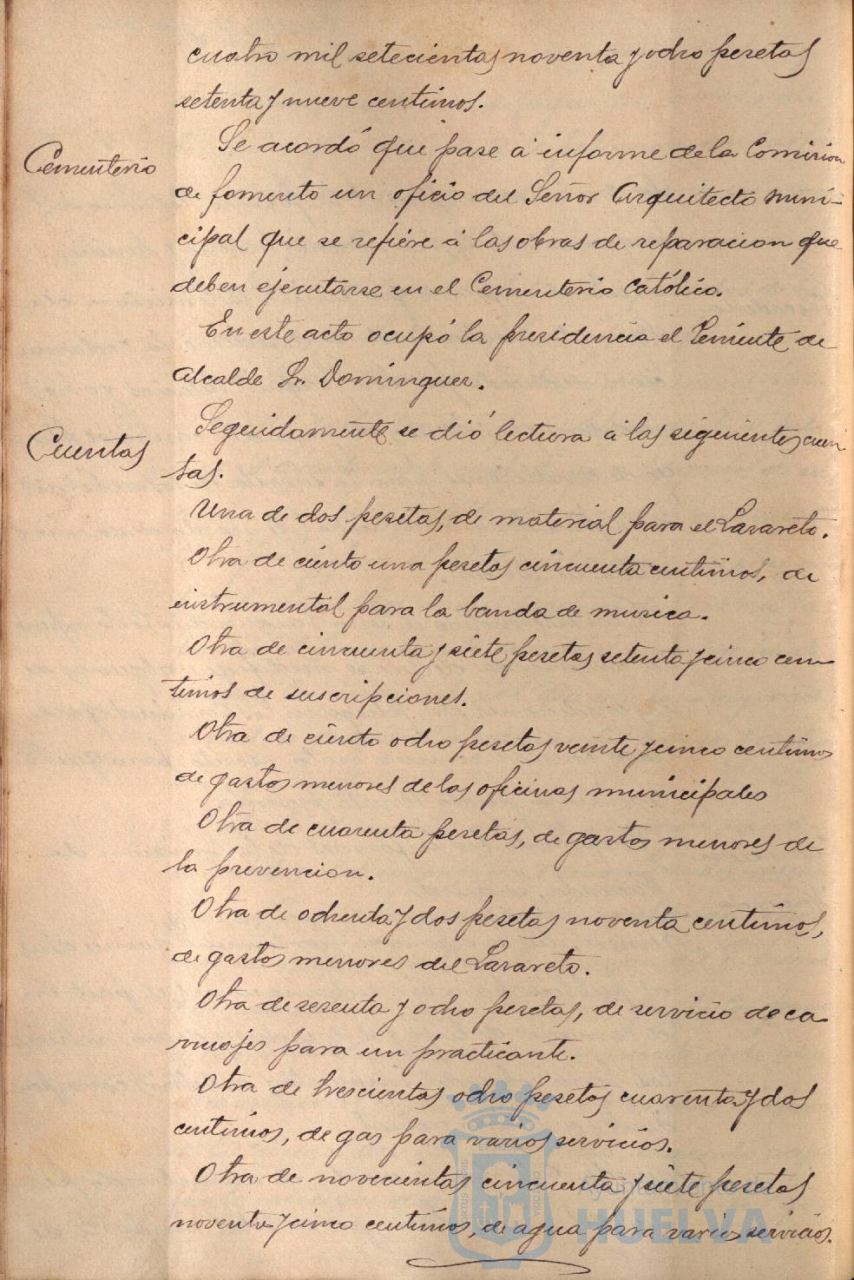 cuatro mil setecientas noventa y ocho pesetas
setenta y nueve centimos.
Cementerio
Se acordó que pase á informe de la Comision
de fomento un oficio del Señor Arquitecto muni-
cipal que se refiere á las obras de reparacion que
deben ejecutarse en el Cementerio Católico.
En este acto ocupó la presidencia el Teniente de
Alcalde Sr. Dominguez.
Cuentas
Seguidamente se dió lectura á las siguientes cuen
tas.
Una de dos pesetas, de material para el Lazareto.
Otra de ciento una pesetas cincuenta centimos, de
instrumental para la banda de musica.
Otra de cincuenta y siete pesetas setenta y cinco cen-
timos de suscripciones.
Otra de ciento ocho pesetas veinte y cinco centimos
de gastos menores de las oficinas municipales
Otra de cuarenta pesetas, de gastos menores de
la prevencion.
Otra de ochenta y dos pesetas noventa centimos,
de gastos menores del Lazareto.
Otra de sesenta y ocho pesetas, de servicio de ca-
rruajes para un practicante.
Otra de trescientas ocho pesetas cuarenta y dos
centimos, de gas para varios servicios.
Otra de novecientas cincuenta y siete pesetas
noventa y cinco centimos, de agua para varios servicios.
HUELVA